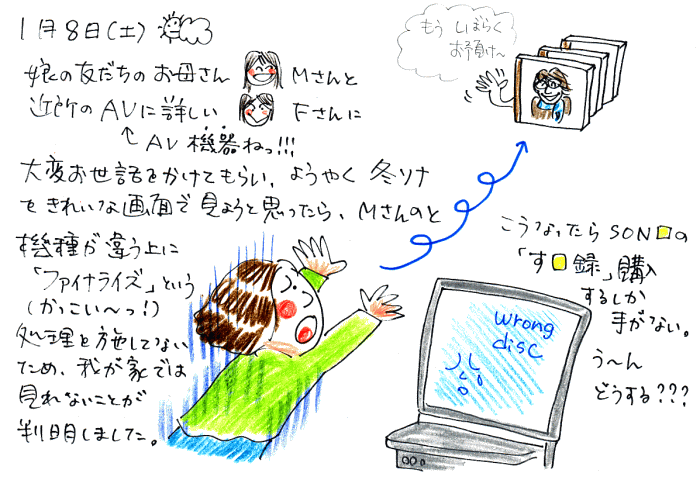 1月8日(土)
娘の友だちのお母さん Mさんと
近所のAVに詳しい Fさんに
↑AV機器ねっ!!!
大変お世話をかけてもらい、ようやく 冬ソナ
をきれいな画面で見ようと思ったら、Mさんのと
機種が違う上に
「ファイナライズ」という
(かっこい〜っ!)
処理を施してない
ため、我が家では
見れないことが
判明しました。
もう しばらく
お預け〜
こうなったらSON□の
「す□録」購入
するしか
手がない。
う〜ん
どうする???
wrong
disc